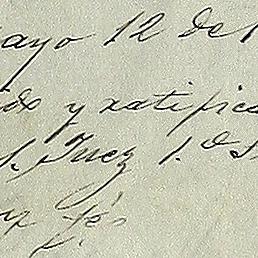 ayo 12 de 1
ido y ratifica
S. Juez 1.º S
az fé